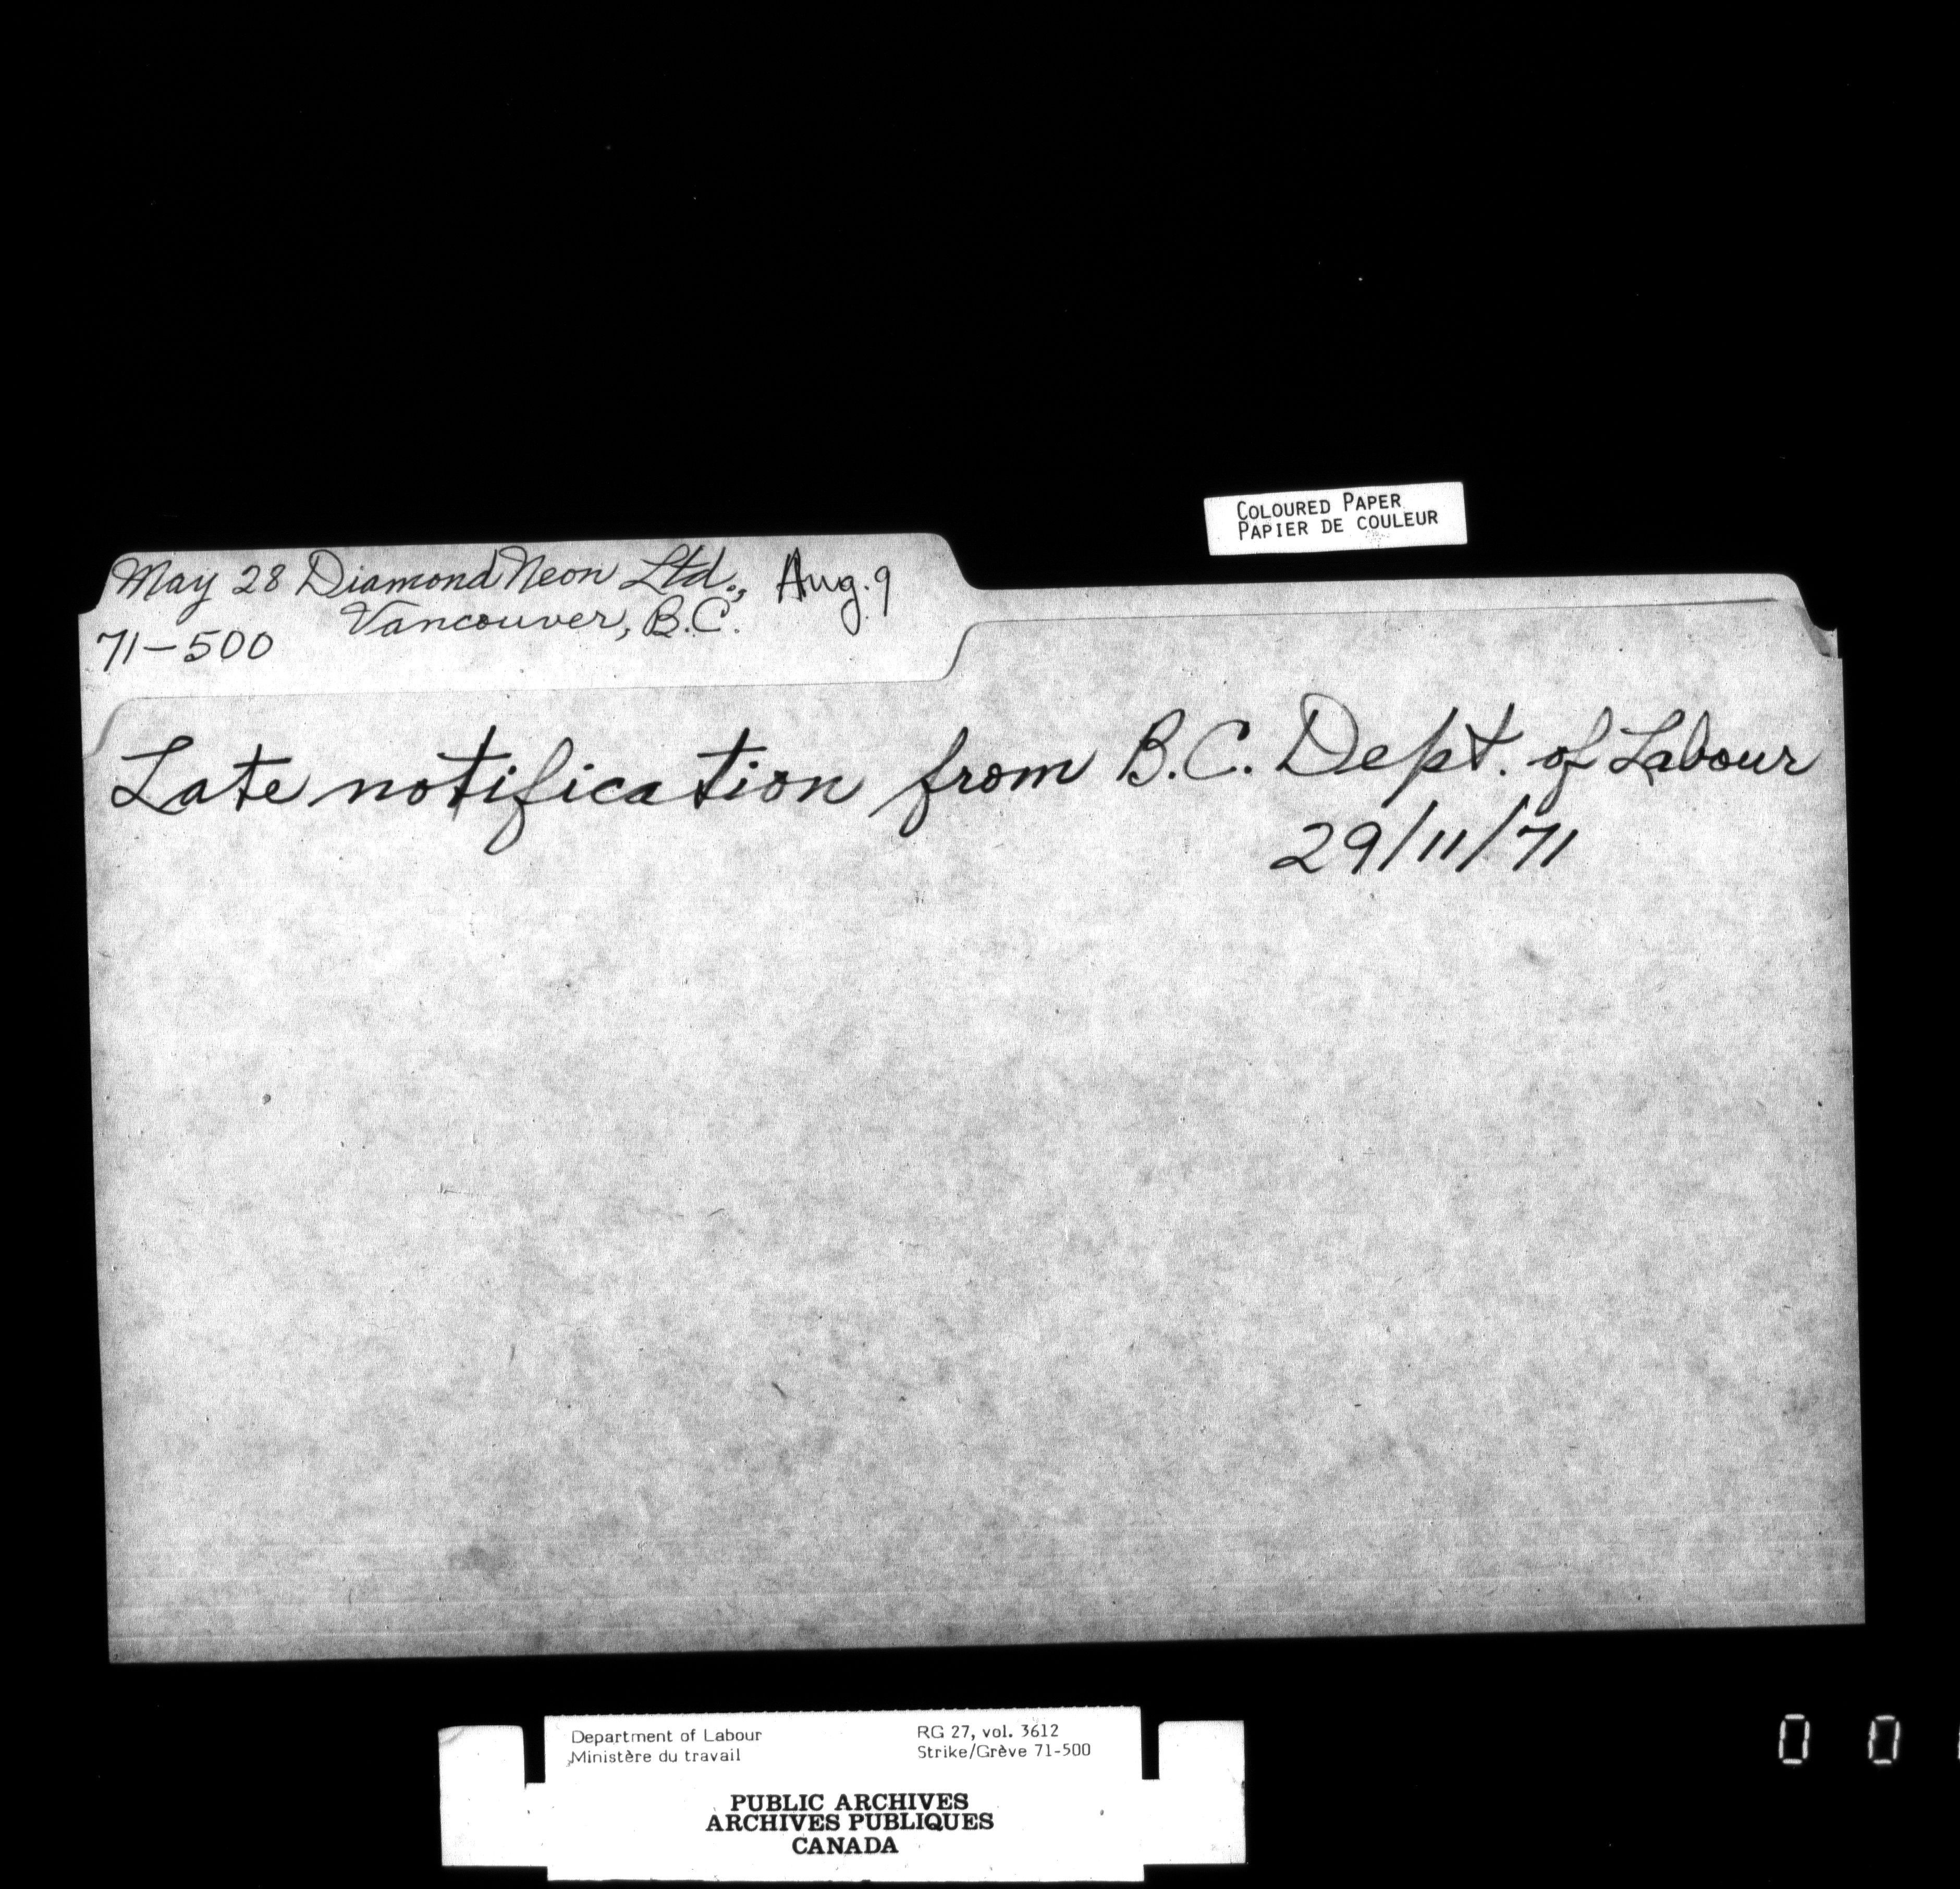 COLOURED PAPER
PAPIER DE COULEUR
May 28 Diamond Neon Ltd., Aug. 9
Vancouver, B.C.
71-500
Late notification from B.C. Dept. of Labour
29/11/71
Department of Labour RG 27, vol. 3612
Ministère du travail Strike/Grève 71-500
PUBLIC ARCHIVES
ARCHIVES PUBLIQUES
CANADA
0 0